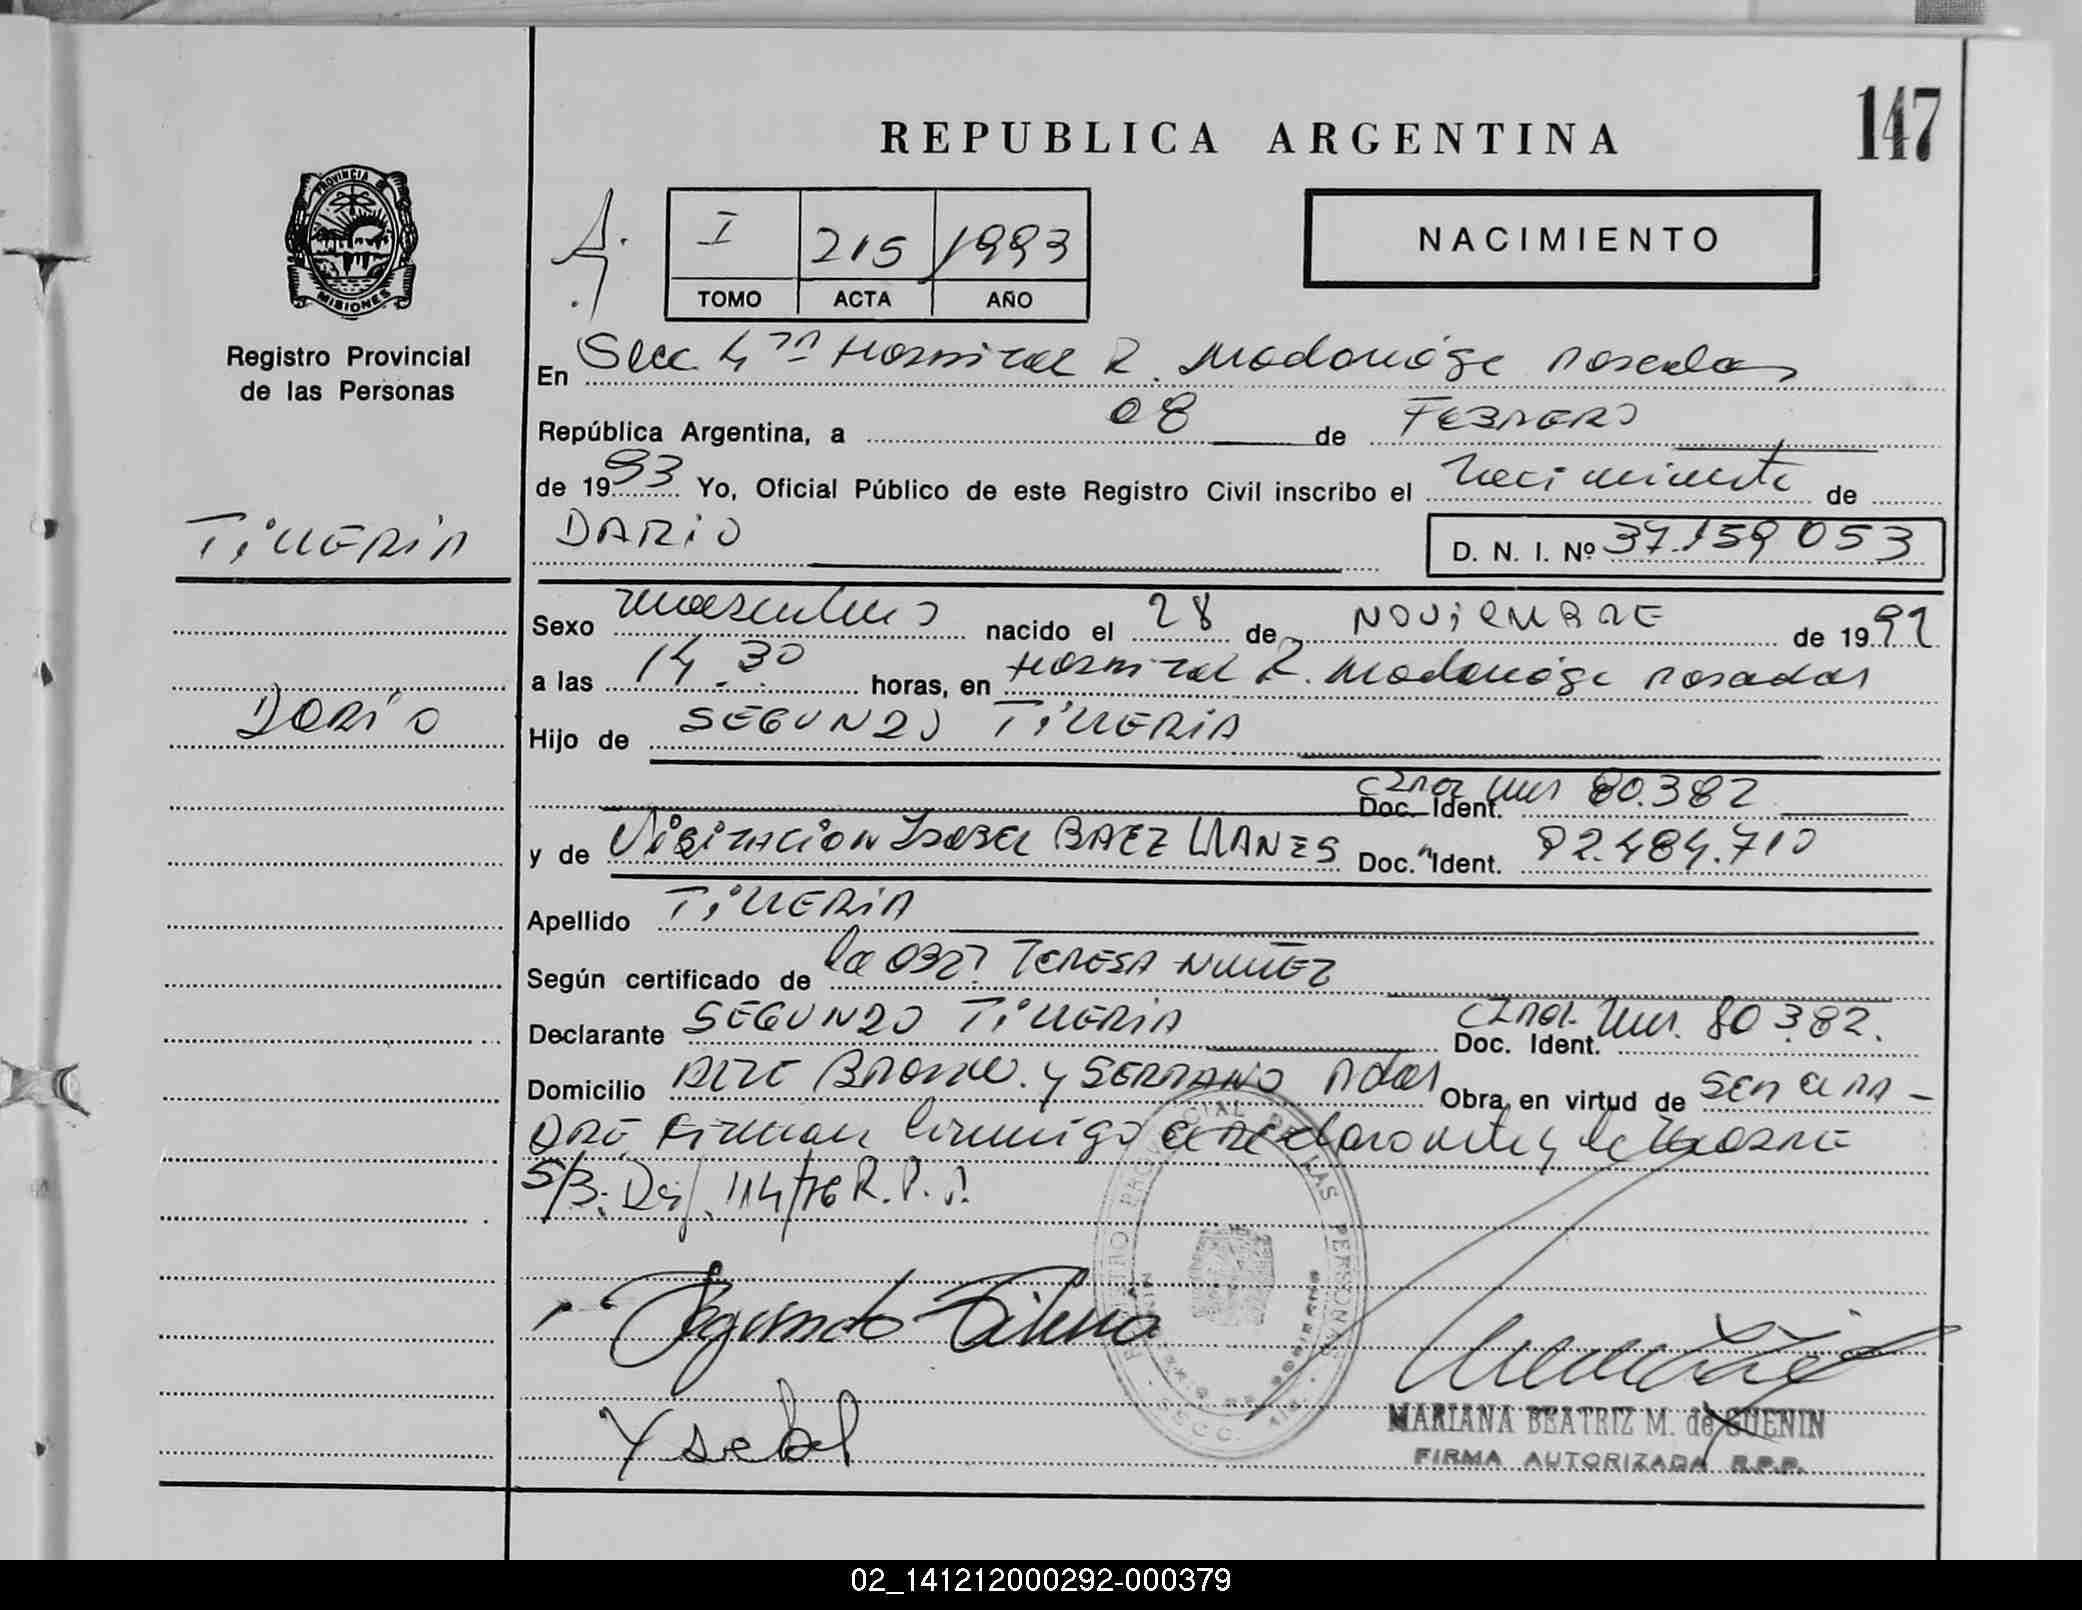 147
REPUBLICA ARGENTINA
PROVINCIA DE
MISIONES
NACIMIENTO
I 215 1993
TOMO ACTA AÑO
Registro Provincial
de las Personas
En Secc. 4ta Hospital R. Madariaga Posadas
República Argentina, a 08 de FEBRERO
de 1993 Yo, Oficial Público de este Registro Civil inscribo el Nacimiento de
TILLERIA
DARIO D. N. I. Nº 37.159.053
Sexo masculino nacido el 28 de NOVIEMBRE de 1992
a las 14.30 horas, en Hospital R. Madariaga Posadas
DARIO
Hijo de SEGUNDO TILLERIA
Doc. Ident. 80.382
y de VISITACION ISABEL BAEZ LLANES Doc. Ident. 92.484.710
Apellido TILLERIA
Según certificado de la OBST TERESA NUÑEZ
Declarante SEGUNDO TILLERIA Doc. Ident. 80.382.
Domicilio ALTE BROWN y SERRANO Pdas Obra en virtud de SER EL PA-
DRE, Firman conmigo el declarante y la MADRE
S/B. 114/76 R.P.P.
REGISTRO PROVINCIAL DE LAS PERSONAS
SECC. 4ta.
Segundo Tileria
Ysabel
MARIANA BEATRIZ M. de GUENIN
FIRMA AUTORIZADA R.P.P.
02_141212000292-000379